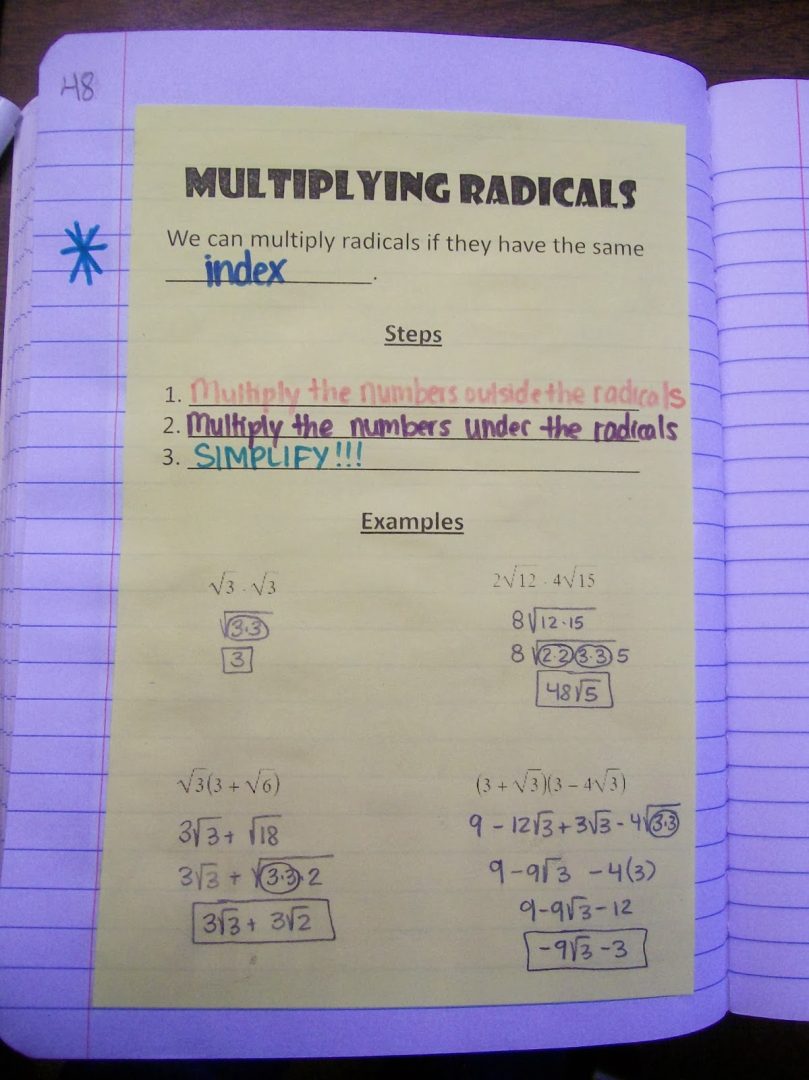 48
MULTIPLYING RADICALS
We can multiply radicals if they have the same
index.
Steps
1. Multiply the numbers outside the radicals
2. Multiply the numbers under the radicals
3. SIMPLIFY!!!
Examples
√3 · √3
√3·3
3
2√12 · 4√15
8√12·15
8√2·2 3·3 5
48√5
√3(3 + √6)
3√3 + √18
3√3 + √3·3·2
3√3 + 3√2
(3 + √3)(3 − 4√3)
9 − 12√3 + 3√3 − 4√3·3
9 − 9√3 − 4(3)
9 − 9√3 − 12
−9√3 − 3